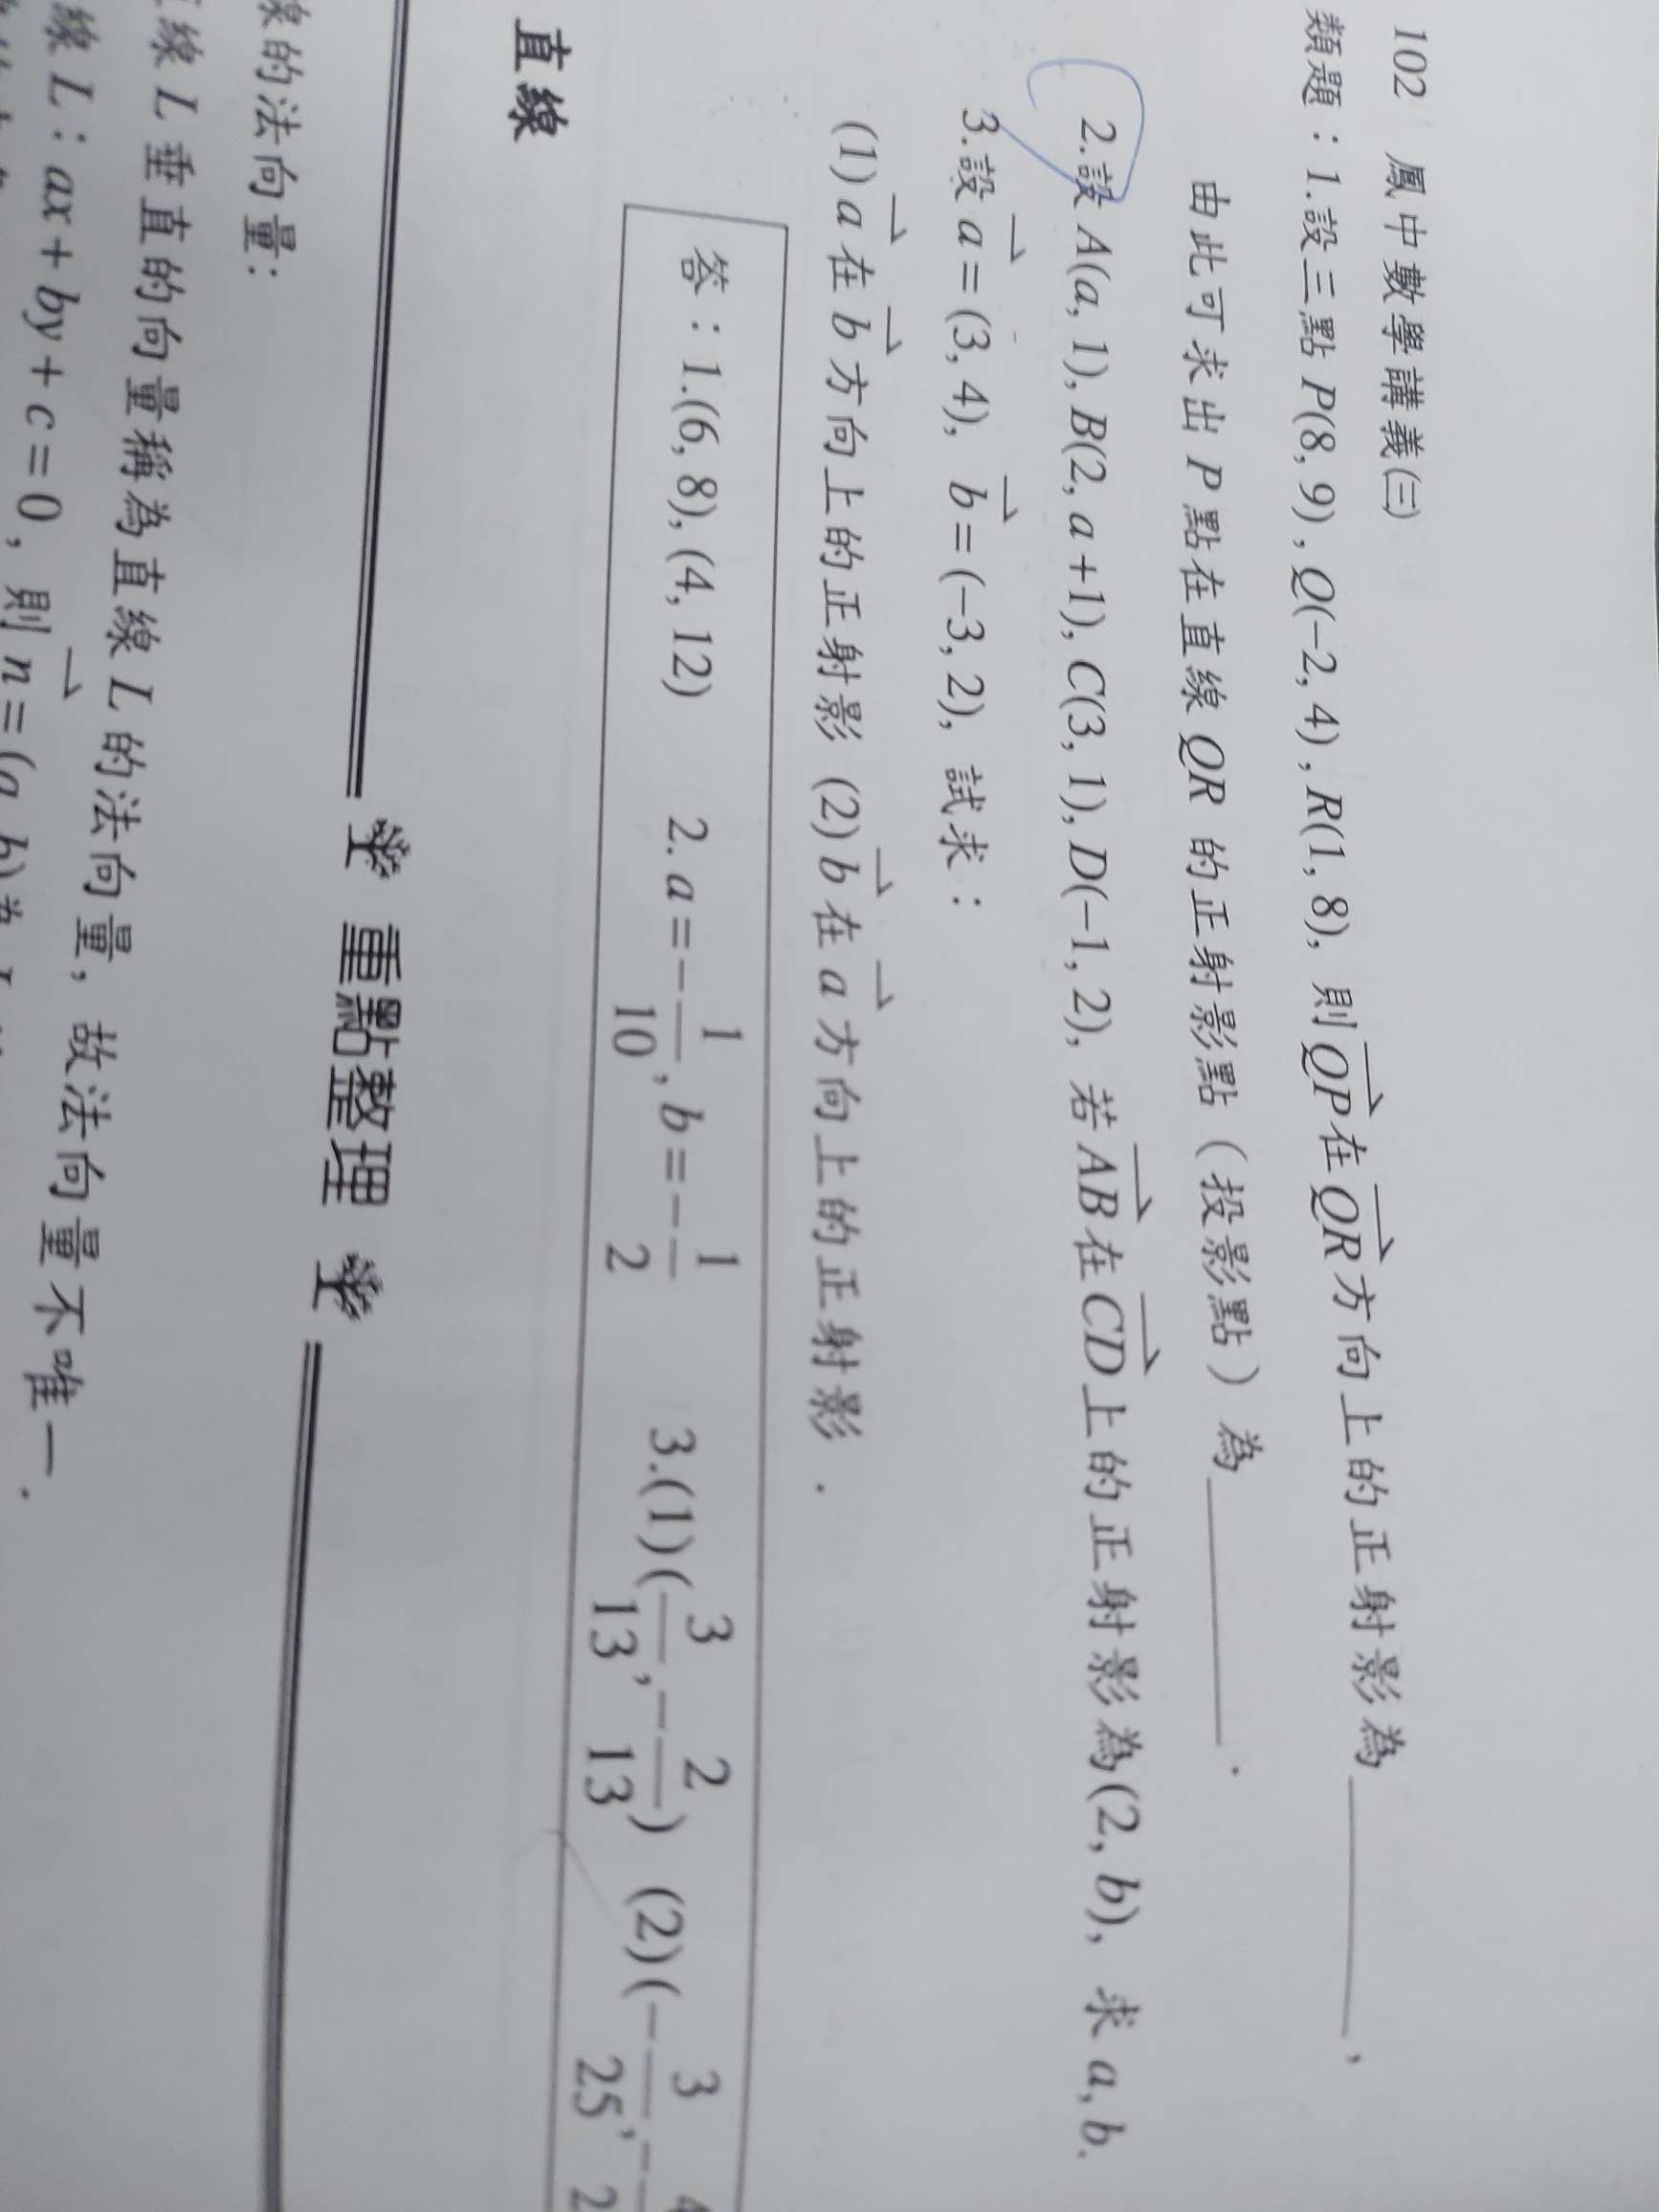 102 鳳中數學講義(三)
類題：1.設三點 P(8, 9), Q(−2, 4), R(1, 8), 則 \overrightarrow{QP} 在 \overrightarrow{QR} 方向上的正射影為________，
由此可求出 P 點在直線 QR 的正射影點（投影點）為________．
2.設 A(a, 1), B(2, a+1), C(3, 1), D(−1, 2), 若 \overrightarrow{AB} 在 \overrightarrow{CD} 上的正射影為(2, b), 求 a, b.
3.設 \overrightarrow{a} = (3, 4), \overrightarrow{b} = (−3, 2), 試求：
(1) \overrightarrow{a} 在 \overrightarrow{b} 方向上的正射影 (2) \overrightarrow{b} 在 \overrightarrow{a} 方向上的正射影．
答：1.(6, 8), (4, 12) 2. a = −1/10, b = −1/2 3.(1)(3/13, −2/13) (2)(−3/25, −
直線
重點整理
線的法向量：
線 L 垂直的向量稱為直線 L 的法向量, 故法向量不唯一．
線 L：ax + by + c = 0, 則 \overrightarrow{n} = (a, b) 為 L